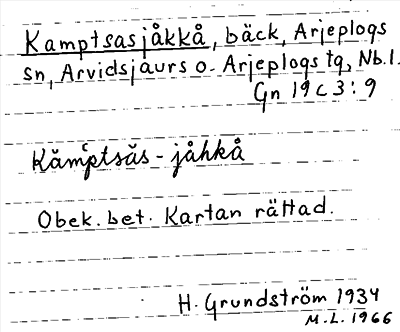 Kamptsasjåkkå, bäck, Arjeplogs
sn, Arvidsjaurs o. Arjeplogs tg, Nb.l.
Gn 19 C 3:9
Kămptsăs-jåhkå
Obek. bet. Kartan rättad.
H. Grundström 1934
M.L. 1966